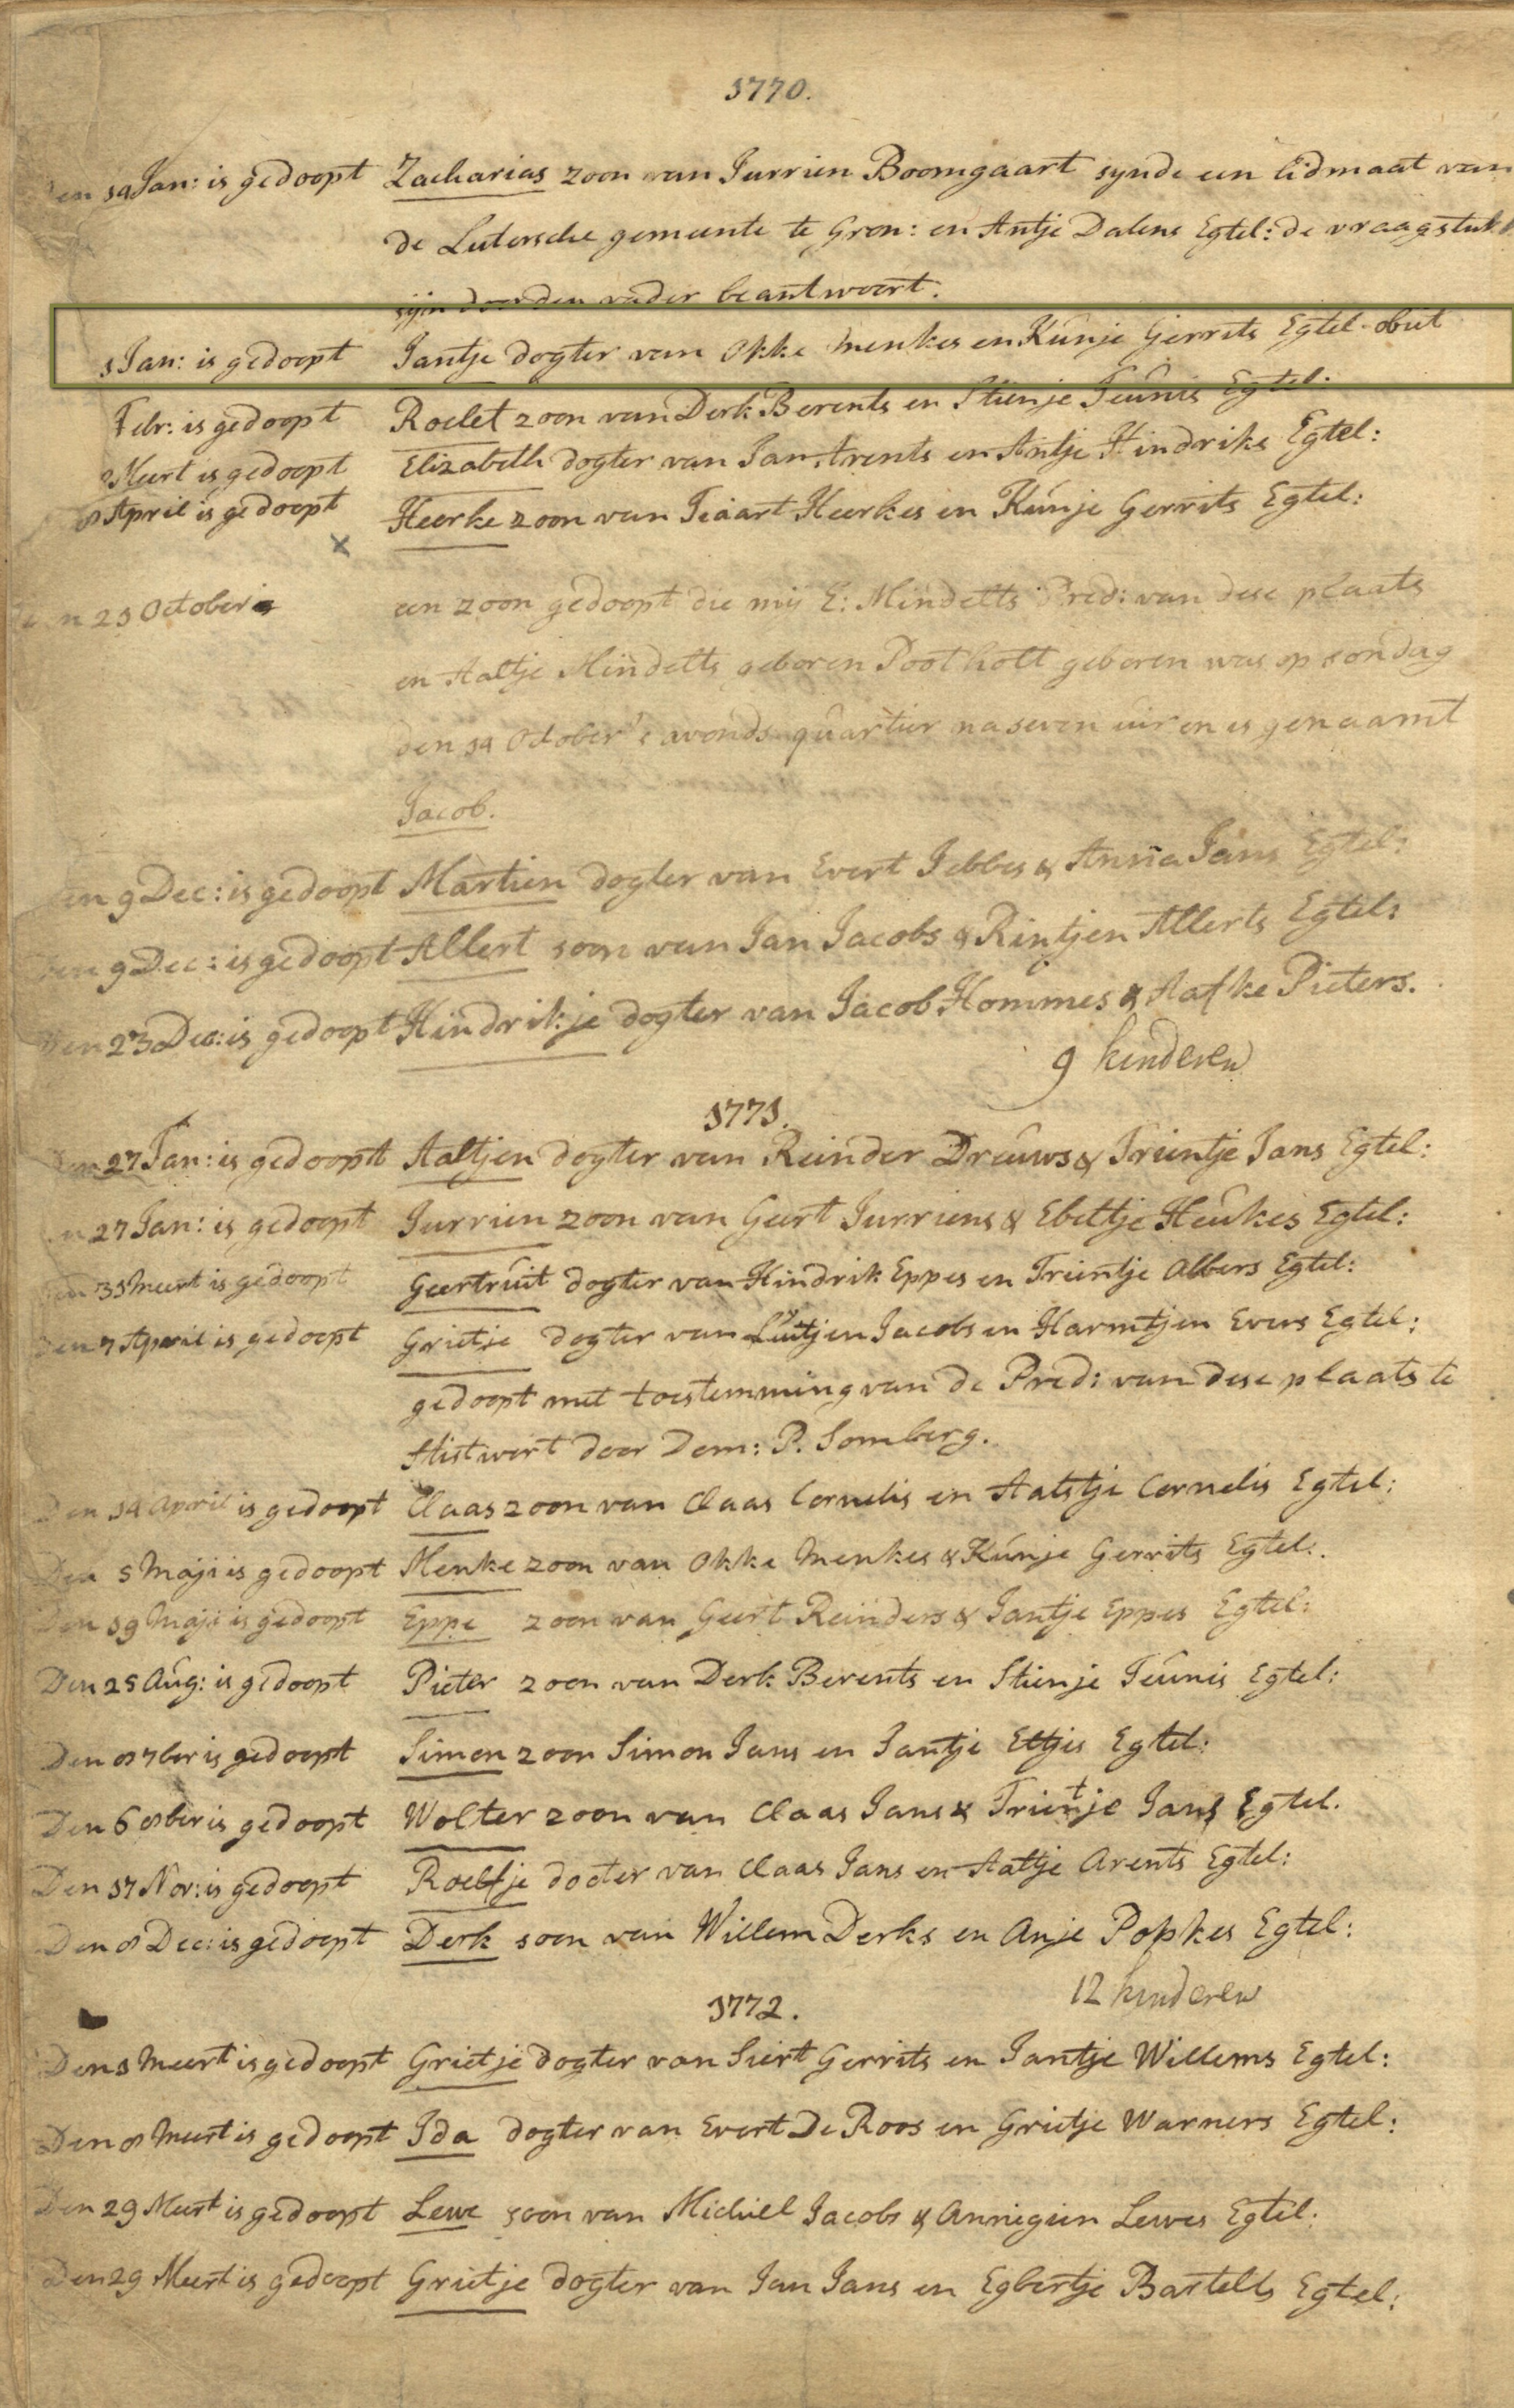 1770.
den 14 Jan: is gedoopt Zacharias zoon van Jurrien Boomgaart synde een lidmaat van
de Lutersche gemeente te Gron: en Antje Dalens Egtel: de vraagstuk
zijn door den vader beantwoort.
Jan: is gedoopt Jantje dogter van Okke Menkes en Kunje Gerrits Egtel. obiit
Febr: is gedoopt Roelet zoon van Derk Berents en Stienje Teunis Egtel:
Meert is gedoopt Elizabeth dogter van Jan Arents en Antje Hindriks Egtel:
April is gedoopt Heerke zoon van Tiaart Heerkes en Kunje Gerrits Egtel:
x
den 21 October is een zoon gedoopt die mij E: Mindelts Pred: van dese plaats
en Aaltje Mindelts geboren Pootholt geboren was op sondag
den 14 October 's avonds quartier na seven uir en is genaamt
Jacob.
den 9 Dec: is gedoopt Martien dogter van Evert Jebbes & Anna Jans Egtel:
den 9 Dec: is gedoopt Allert soon van Jan Jacobs & Rintjen Allerts Egtel:
den 23 Dec: is gedoopt Hindrikje dogter van Jacob Hommes & Aafke Pieters.
9 kinderen
1771.
den 27 Jan: is gedoopt Aaltjen dogter van Reinder Dreuws & Trientje Jans Egtel:
den 27 Jan: is gedoopt Jurrien zoon van Geert Jurriens & Ebeltje Heukes Egtel:
den 31 Meert is gedoopt Geertruit dogter van Hindrik Eppes en Trientje Albers Egtel:
Den 7 April is gedoopt Grietje dogter van Luitjen Jacobs en Harmtjen Evers Egtel:
gedoopt met toestemming van de Pred: van dese plaats te
Stistwert door Dom: P. Somberg.
Den 14 April is gedoopt Claas zoon van Claas Cornelis en Aaltje Cornelis Egtel:
Den 5 Maji is gedoopt Menke zoon van Okke Menkes & Kunje Gerrits Egtel:
Den 19 Maji is gedoopt Eppe zoon van Geert Reinders & Jantje Eppes Egtel:
Den 25 Aug: is gedoopt Pieter zoon van Derk Berents en Stienje Teunis Egtel:
Den 8 7ber is gedoopt Simon zoon Simon Jans en Jantje Eltjes Egtel:
Den 6 8ber is gedoopt Wolter zoon van Claas Jans & Trientje Jans Egtel.
Den 17 Nov: is gedoopt Roelfje docter van Claas Jans en Aaltje Arents Egtel:
Den 8 Dec: is gedoopt Derk soon van Willem Derks en Anje Popkes Egtel:
12 kinderen
1772.
Den 1 Meert is gedoopt Grietje dogter van Siert Gerrits en Jantje Willems Egtel:
Den 8 Meert is gedoopt Ida dogter van Evert De Roos en Grietje Warners Egtel:
Den 29 Meert is gedoopt Lewe soon van Michiel Jacobs & Annigien Lewes Egtel:
Den 29 Meert is gedoopt Grietje dogter van Jan Jans en Egbertje Bartelds Egtel: